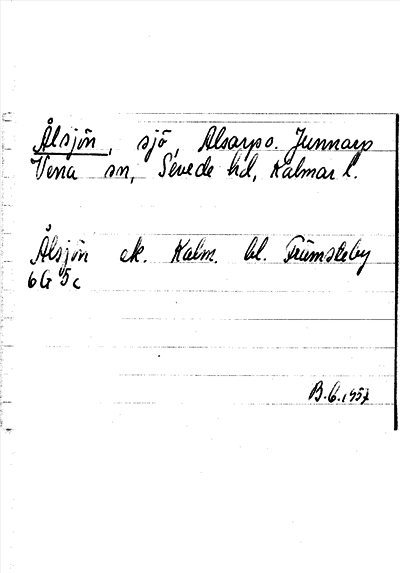 Ålsjön, sjö, Alsarp o. Junnarp
Vena sn, Sevede hd, Kalmar l.
Ålsjön ek. Kalm. bl. Frümsteby
6G 5c
B.G. 1957